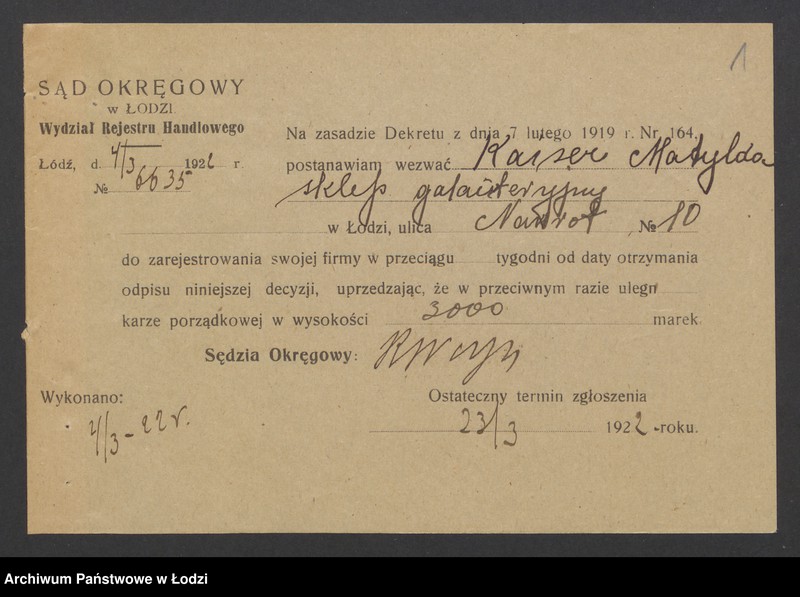 1
SĄD OKRĘGOWY
w ŁODZI.
Wydział Rejestru Handlowego
Łódź, d. 4/3 1922 r.
№ 6635
Na zasadzie Dekretu z dnia 7 lutego 1919 r. Nr. 164,
postanawiam wezwać Kaiser Matylda
sklep galanteryjny
w Łodzi, ulica Nawrot № 10
do zarejestrowania swojej firmy w przeciągu tygodni od daty otrzymania
odpisu niniejszej decyzji, uprzedzając, że w przeciwnym razie ulegn
karze porządkowej w wysokości 3000 marek.
Sędzia Okręgowy:
Wykonano:
4/3 - 22 r.
Ostateczny termin zgłoszenia
23/3 1922 -roku.
Archiwum Państwowe w Łodzi